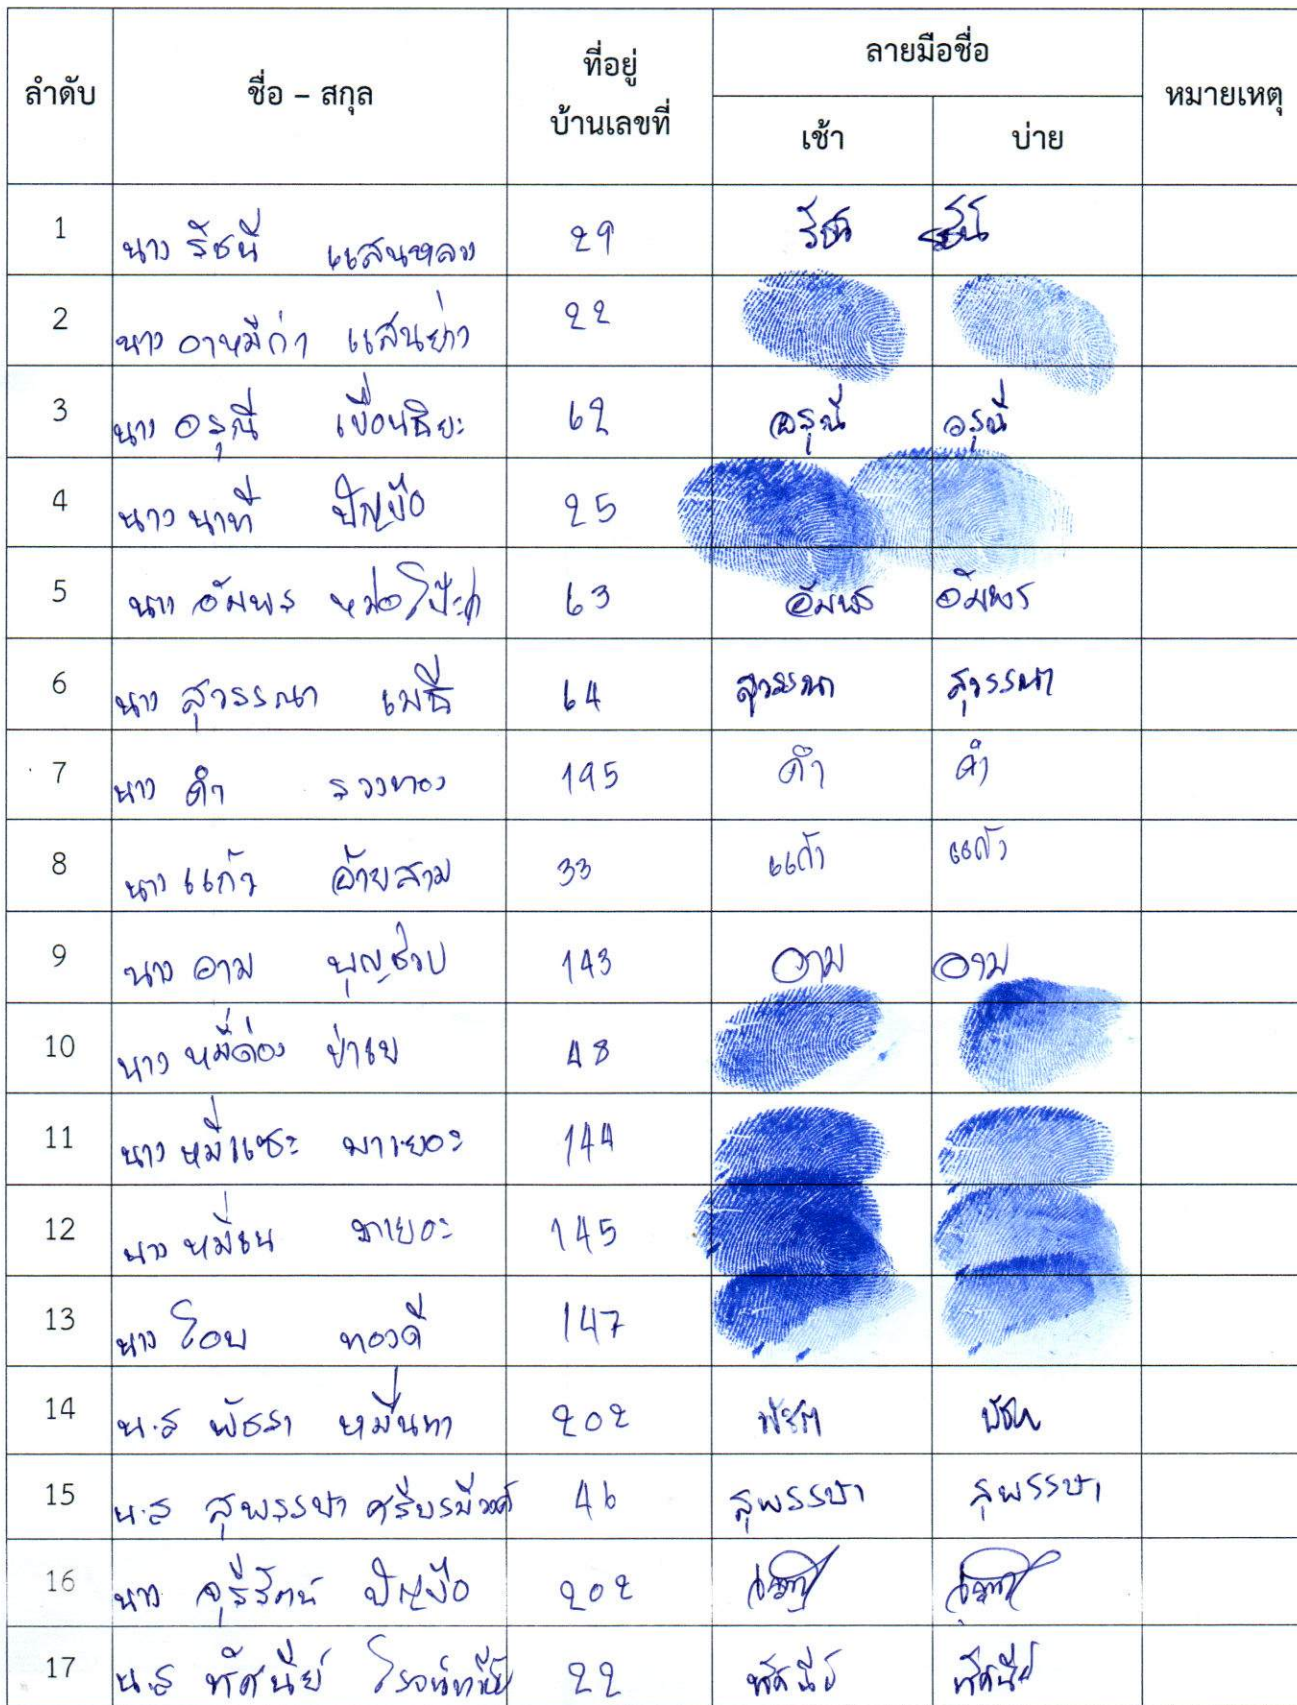 ลำดับ ชื่อ – สกุล ที่อยู่ บ้านเลขที่ ลายมือชื่อ หมายเหตุ
เช้า บ่าย
1 นาง รัชนี แสนหลวง 29 รัชนี รัชนี
2 นาง อาหมีก่า แสนย่าง 22
3 นาง อรุณี เขื่อนธิยะ 62 อรุณี อรุณี
4 นาง นาที ปัญขือ 25
5 นาง อัมพร 63 อัมพร อัมพร
6 นาง สุวรรณา เมธี 64 สุวรรณา สุวรรณา
7 นาง คำ รวงทอง 195 คำ คำ
8 นาง แก้ว อ้ายสาม 33 แก้ว แก้ว
9 นาง อาม บุญช่วย 143 อาม อาม
10 นาง หมี่ต่อง ย่าเบ 48
11 นาง หมี่แซะ มาเยอะ 144
12 นาง หมี่เน มาเยอะ 145
13 นาง โอบ ทองดี 147
14 น.ส พัชรา หมื่นทา 202 พัชรา พัชรา
15 น.ส สุพรรษา ศรีบรมีวงศ์ 46 สุพรรษา สุพรรษา
16 นาง จุรีรัตน์ ปัญขือ 202
17 น.ส ทัศนีย์ 22 ทัศนีย์ ทัศนีย์